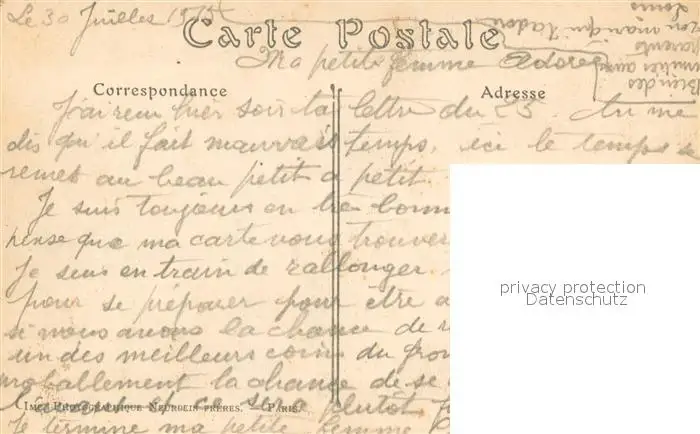 Le 30 Juilles 1915
Carte Postale
Ma petite femme Adorée
Correspondance
Adresse
J'ai reçu hier soir ta lettre du 25. tu me
dis qu'il fait mauvais temps, ici le temps se
remet au beau petit a petit
Je suis toujours en
pense que ma carte vous trouver
Je suis en train de rallonger
pour se préparer pour être a
si nous avons la chance de
un des meilleurs coins du fron
proballement la chance de se
la et ce sera plutôt
IMP. PHOTOGRAPHIQUE NEURDEIN FRÈRES. PARIS.
Je termine ma petite femme
Bien des
aux
parents
ton mari qui t'adore
Louis
privacy protection
Datenschutz